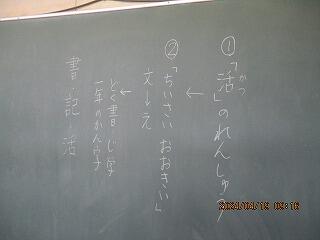 ①「活」のれんしゅう
かつ
↓
②「ちいさい おおきい」
文→え
↓
どく書 じ字
一年のかん字
書・記・活
2024/04/19 09:16